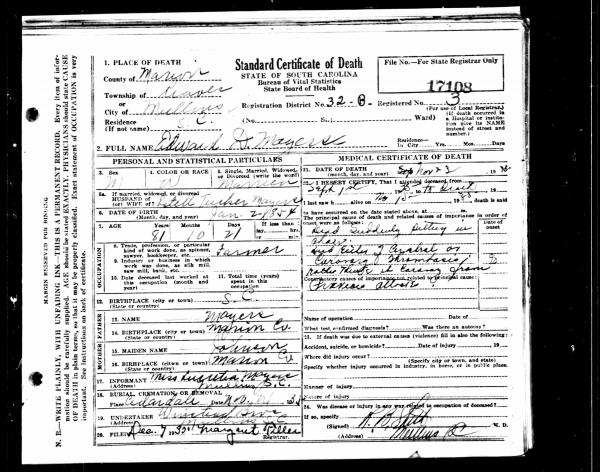 1. PLACE OF DEATH
County of Marion
Township of
or
City of Mullins
Residence S. C.
(If not name)
2. FULL NAME Edward D. Mayers
Standard Certificate of Death
STATE OF SOUTH CAROLINA
Bureau of Vital Statistics
State Board of Health
Registration District No. 32-B
Registered No. 3
(No. St.; Ward)
File No.—For State Registrar Only
17108
(For use of Local Registrar)
(If death occurred in a Hospital or institution give its NAME instead of street and number.)
Residence— In City Yrs. Mos.
PERSONAL AND STATISTICAL PARTICULARS
3. Sex
4. COLOR OR RACE
5. Single, Married, Widowed, or Divorced (write the word)
5a. If married, widowed, or divorced
HUSBAND of
(or) WIFE of Tucker Mayers
6. DATE OF BIRTH
(Month, day, and year) Jan. 2, 1854
7. AGE Years Months Days If less than 1 day, hrs. or min.
81 10 21
OCCUPATION
8. Trade, profession, or particular kind of work done, as spinner, sawyer, bookkeeper, etc. Farmer
9. Industry or business in which work was done, as silk mill, saw mill, bank, etc.
10. Date deceased last worked at this occupation (month and year)
11. Total time (years) spent in this occupation
12. BIRTHPLACE (city or town) S. C.
(State or country)
FATHER
13. NAME Mayers
14. BIRTHPLACE (city or town) Marion Co.
(State or country)
MOTHER
15. MAIDEN NAME Johnson
16. BIRTHPLACE (citwn or town) Marion Co
(State or country)
17. INFORMANT Miss Mayers
(Address) Mullins S.C.
18. BURIAL, CREMATION, OR REMOVAL
Place Date
19. UNDERTAKER
(Address)
20. FILED Dec. 7 1935 Margaret Tiller
Registrar.
MEDICAL CERTIFICATE OF DEATH
21. DATE OF DEATH
(month, day, and year) Nov 23 1935
22. I HEREBY CERTIFY, That I attended deceased from
Sept 1st to death
I last saw h alive on Nov 15 death is said
to have occurred on the date stated above, at
The principal cause of death and related causes of importance in order of onset were as follows:
Date of onset
Died suddenly sitting in
chair.
Coronary Thrombosis
from
previous attacks
Contributory causes of importance not related to principal cause:
Name of operation Date of
What test confirmed diagnosis? Was there an autopsy?
23. If death was due to external causes (violence) fill in also the following:
Accident, suicide, or homicide? Date of injury 19
Where did injury occur?
(Specify city or town, and state)
Specify whether injury occurred in industry, in home, or in public place.
Manner of injury
Nature of injury
24. Was disease or injury in any way related to occupation of deceased?
If so, specify
(Signed) M. D.
(Address) Mullins SC
MARGIN RESERVED FOR BINDING
N. B.—WRITE PLAINLY, WITH UNFADING INK—THIS IS A PERMANENT RECORD. Every item of information should be carefully supplied. AGE should be stated EXACTLY. PHYSICIANS should state CAUSE OF DEATH in plain terms, so that it may be properly classified. Exact statement of OCCUPATION is very important. See instructions on back of certificate.